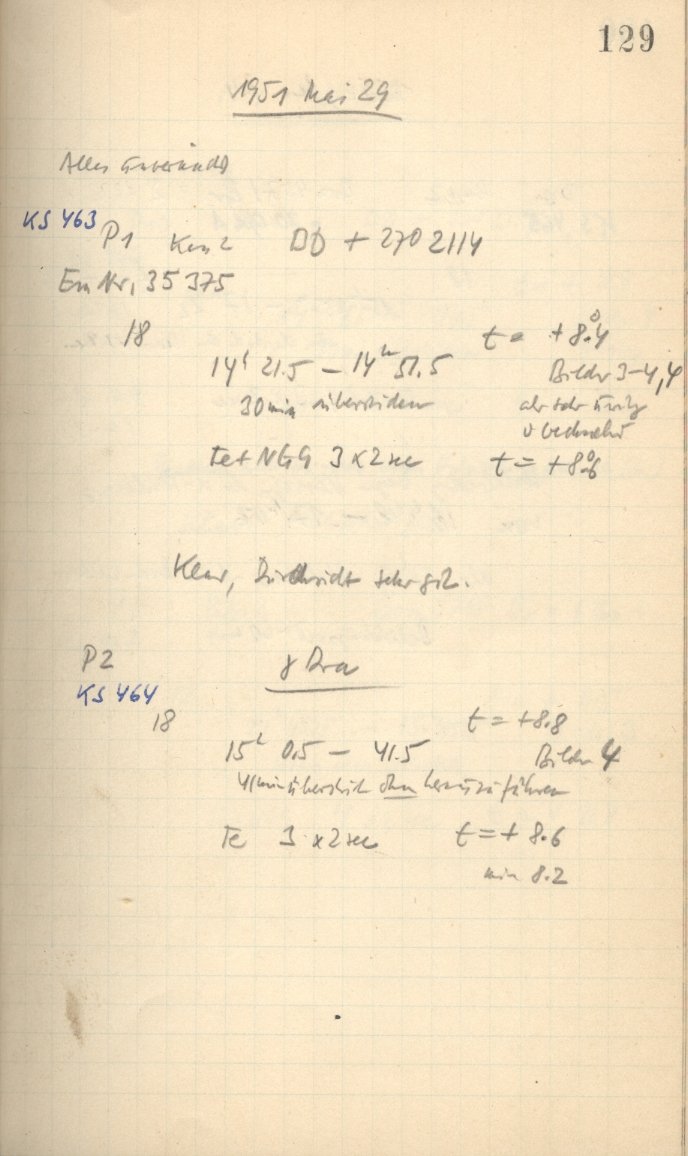 129
1951 Mai 29
Alles unverändert
KS 463
P1 Kam 2 BD + 270 2114
Em Nr. 35 375
18 t = +8.°4
14h 21.5 – 14h 51.5 Bilder 3-4, 4
30 min überstrichen aber sehr
Te + NGG 3 x 2 sec t = +8.°6
Klar, Durchsicht sehr gut.
P2 γ Dra
KS 464
18 t = +8.8
15h 0.5 – 41.5 Bilder 4
41 min überstrich ohne
Te 3 x 2 sec t = + 8.6
min 8.2